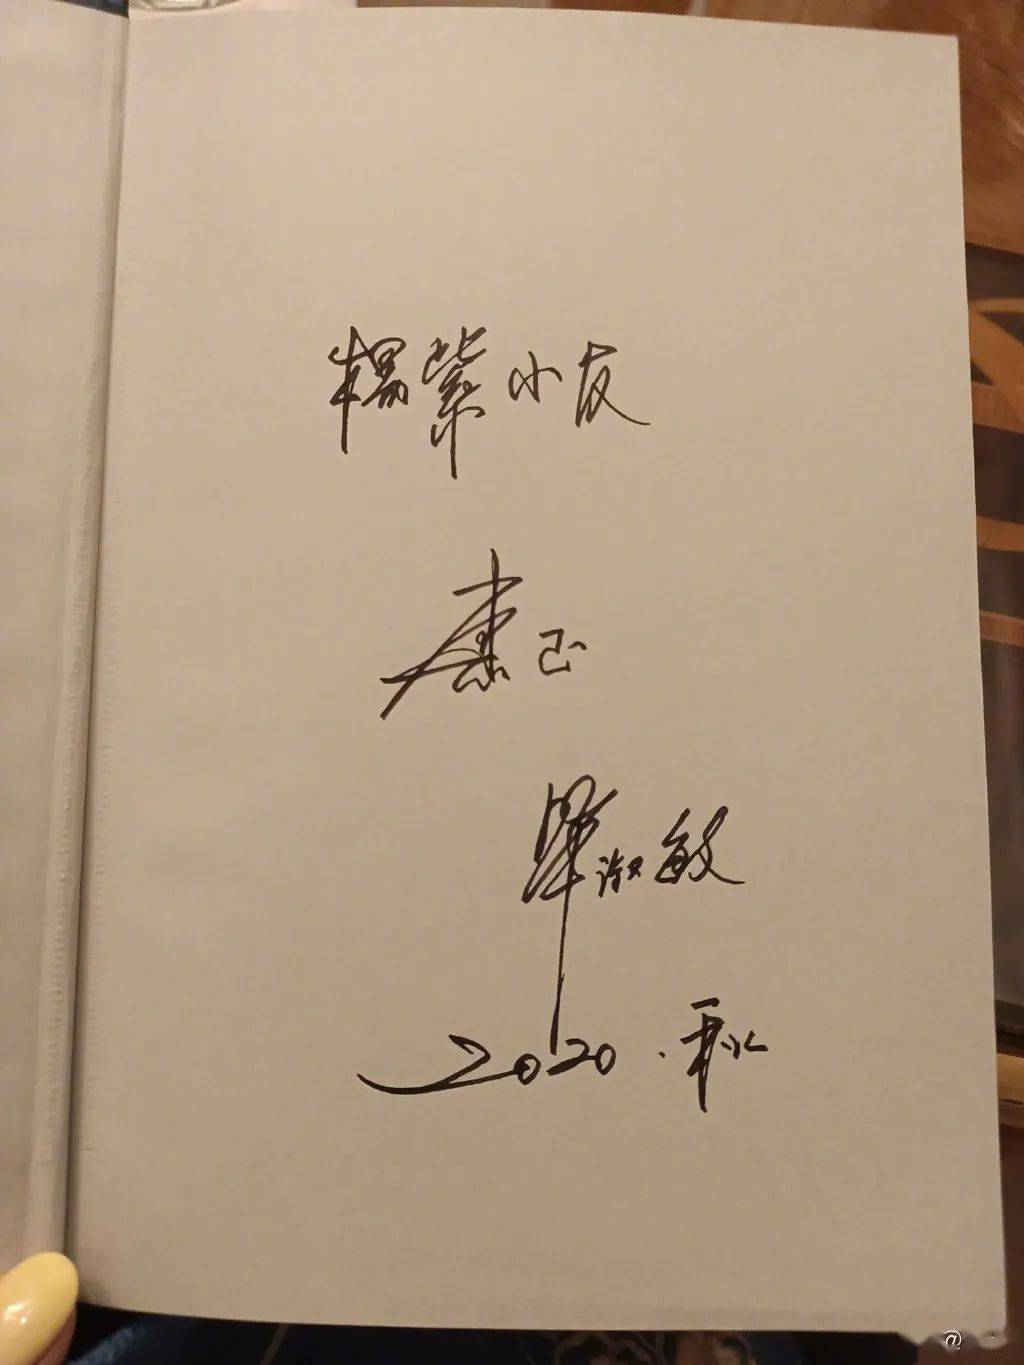 杨紫小友
惠正
毕淑敏
2020.秋
@